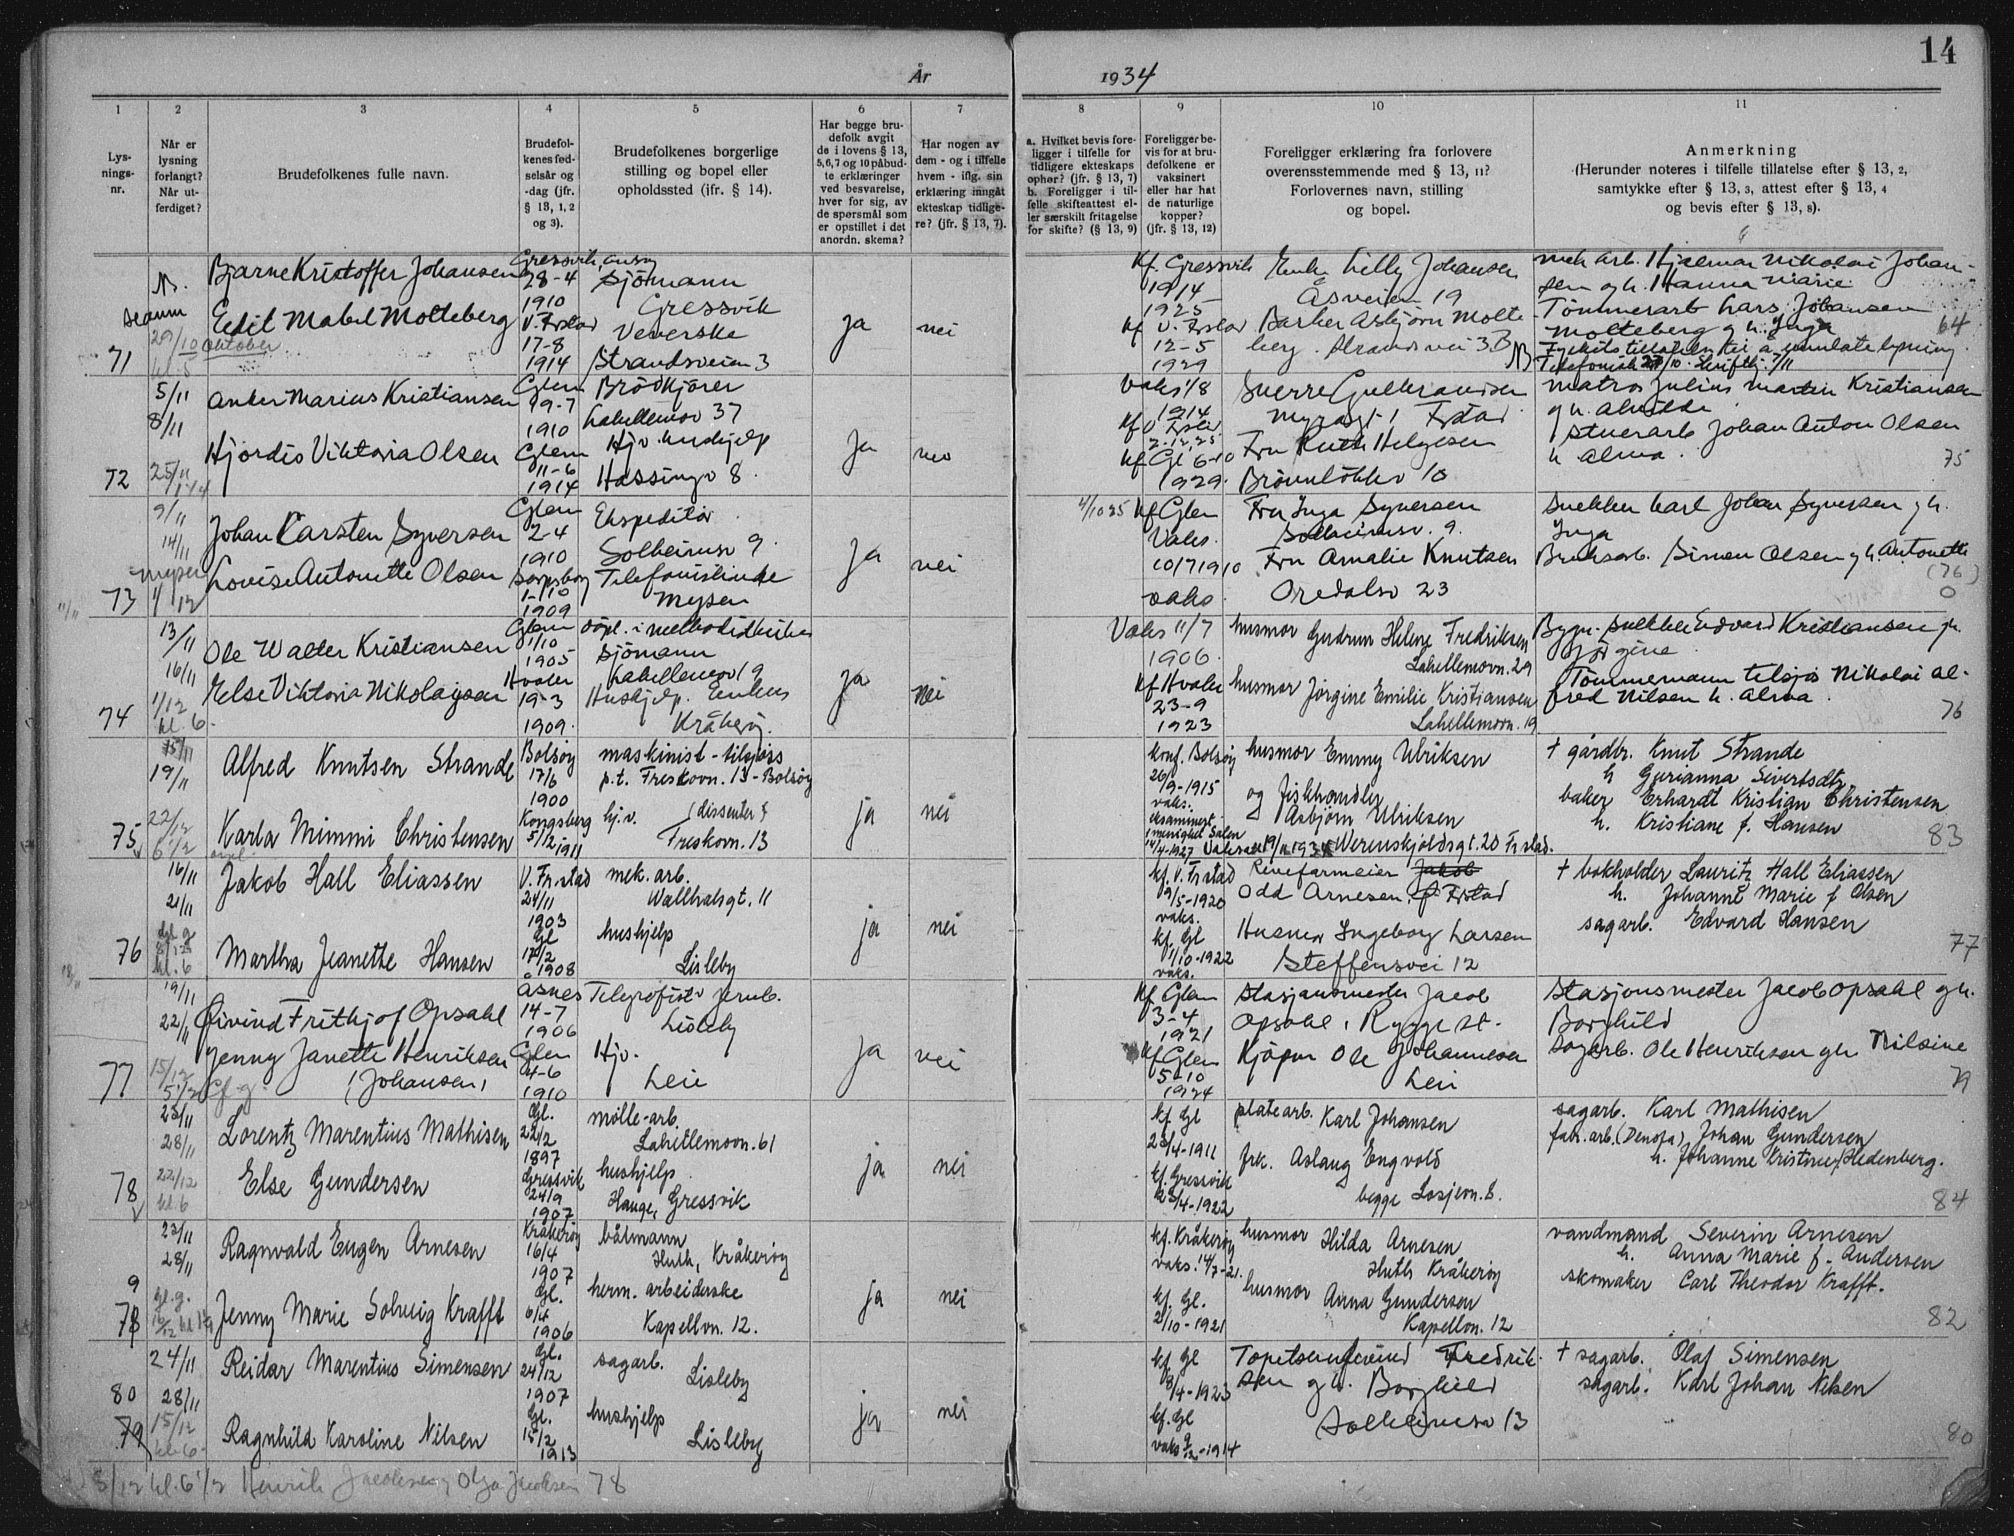 14
År 1934
1 2 3 4 5 6 7 8 9 10 11
Lys-
nings-
nr.
Når er
lysning
forlangt?
Når ut-
ferdiget?
Brudefolkenes fulle navn.
Brudefol-
kenes fød-
selsår og
-dag (jfr.
§ 13, 1, 2
og 3).
Brudefolkenes borgerlige
stilling og bopel eller
opholdssted (ifr. § 14).
Har begge bru-
defolk avgit
de i lovens § 13,
5,6,7 og 10 påbud-
te erklæringer
ved besvarelse,
hver for sig, av
de spørsmål som
er opstillet i det
anordn. skema?
Har nogen av
dem - og i tilfelle
hvem - iflg. sin
erklæring inngått
ekteskap tidlige-
re? (jfr. § 13, 7).
a. Hvilket bevis fore-
ligger i tilfelle for
tidligere ekteskaps
ophør? (jfr. § 13, 7)
b. Foreligger i til-
felle skifteattest el-
ler særskilt fritagelse
for skifte? (§ 13, 9)
Foreligger be-
vis for at bru-
defolkene er
vaksinert
eller har hat
de naturlige
kopper?
(jfr. § 13, 12)
Foreligger erklæring fra forlovere
overensstemmende med § 13, 11?
Forlovernes navn, stilling
og bopel.
Anmerkning
(Herunder noteres i tilfelle tillatelse efter § 13, 2,
samtykke efter § 13, 3, attest efter § 13, 4
og bevis efter § 13, 8).
71
29/10 oktober
Bjarne Kristoffer Johansen
Edit Mabel Molteberg
Gressvik, Onsøy
28-4
1910
V. Frstad
17-8
1914
Sjömann
Gressvik
Veverske
Strandsveien 3
ja
nei
Kf. Gressvik
19/4
1925
Kf V. Frstad
12-5
1929
Enke Lilly Johansen
Åsveien 19
Barber Asbjørn Molte
berg. Strandsvei 3B
mek arb. Hjalmar Nikolai Johan-
sen og h. Hanna Marie
Tømmerarb Lars Johansen
Molteberg g h. Inga
64
72
5/11
8/11
25/11
Anker Marius Kristiansen
Hjördis Viktoria Olsen
Glem
19-7
1910
Glem
11-6
1914
Brödkjörer
Lahellemov 37
Hjv. hushjelp
Hassingv 8.
ja
nei
Vaks 1/8
1914
Kf V. Frstd
2-12, 25
Kf Gl, 6-10
1929.
Sverre Gulbrandsen
Fru Ruth Helgesen
Brönnlökkev 10
Matros Julius Martin Kristiansen
g h. Alvilde
Stuerarb Johan Anton Olsen
h Alma.
75
73
9/11
14/11
Mysen
1/12
Johan Karsten Syversen
Lovise Antonette Olsen
Glem
2-4
1910
Sarpsborg
1-10
1909
Ekspeditør
Solheimsv 9.
Telefonistinde
Mysen
ja
nei
4/10 25 Kf Glem
Vaks.
10/7 1910
vaks.
Fru Inga Syversen
Solheimsv. 9.
Fru Amalie Knutsen
Oredalsv 23
Snekker Carl Johan Syversen g h.
Inga
Bruksarb. Simen Olsen g h. Antonette
(76)
0
74
13/11
16/11
1/12
kl. 6.
Ole Walter Kristiansen
Else Viktoria Nikolaysen
Glem
1/10
1905
Hvaler
19-3
1909.
Sjömann
Lahellemov 19
Hushjelp.
Kråkerøy.
ja
nei
Vaks 11/7
1906.
Kf Hvaler
23-9
1923
husmor Gudrun Helene Fredriksen
Lahellemovn. 29
husmor Jørgine Emilie Kristiansen
Lahellemovn. 19
Bygn. snekker Edvard Kristiansen g h.
Jørgine
Tømmermann tilsjøs Nikolai Al-
fred Nilsen h. Alma.
76
75
15/11
19/11
22/12
6 1/2
Alfred Knutsen Strande
Karla Mimmi Christensen
Bolsøy
17/6
1900
Kongsberg
5/12 1911
maskinist - tilsjøss
p.t. Freskovn. 13 - Bolsøy
hj.v. (dissenter)
Freskovn. 13
ja
nei
konf. Bolsøy
20/9-1915
vaks.
eksaminert
i menighet Salen
14/4-1927
husmor Emmy Ulriksen
og fiskhandler
Asbjørn Ulriksen
Werenskjoldsgt. 20 Fr.stad.
+ gårdbr. Knut Strande
h Gurianna Sivertsdtr
baker Erhardt Kristian Christensen
h. Kristiane f. Hansen
83
76
16/11
21/11
kl. 6
Jakob Hall Eliassen
Martha Jeanette Hansen
V. Fr.stad
24/11
1903
Gl
17/2
1908
mek. arb.
Wallhalsgt. 11
hushjelp
Lisleby
ja
nei
kf. V. Fr stad
9/5-1920
vaks.
kf. Gl
1/10-1922
vaks.
Revefarmeier Jakob
Odd Arnesen, Frstad
Husmor Ingeborg Larsen
Steffensvei 12
+ bokholder Lauritz Hall Eliassen
h. Johanne Marie f Olsen
sagarb. Edvard Hansen
77
77
19/11
22/11
15/12
5 1/2 Gl. g.
Øivind Frithjof Opsahl
Jenny Janette Henriksen
(Johansen)
Åsnes
14-7
1906
Glem
4-6
1910
Telegrafist v jernb.
Lisleby
Hjv.
Leie
ja
nei
Kf Glem
3-4
1921
Kf Glem
5-10
1924
Stasjonsmester Jacob
Opsahl, Rygge st.
Kjøpm Ole Johannesen
Leie
Stasjonsmester Jacob Opsahl g h.
Borghild
Sagarb. Ole Henriksen g h Nilsine
79
78
23/11
28/11
22/12
kl. 6
Lorentz Marentius Mathisen
Else Gundersen
Gl.
22/2
1897
Gressvik
24/9
1907
mølle-arb.
Lahellemovn. 61
hushjelp
Hauge, Gressvik
ja
nei
kf Gl
23/4-1911
kf. Gressvik
23/4-1922
platearb. Karl Johansen
frk. Aslaug Engvold
begge Losjevn. 8.
sagarb. Karl Mathisen
fabr. arb. (Denofa) Johan Gundersen
h. Johanne Kristine Hedenberg.
84
9
78
23/11
28/11
gl. g.
Ragnvald Eugen Arnesen
Jenny Marie Solveig Krafft
Kråkerøy
16/4
1907
Gl.
6/4
1906
båtmann
Huth, Kråkerøy
herm. arbeiderske
Kapellvn. 12.
ja
nei
kf. Kråkerøy
vaks. 14/7-21.
kf. Gl.
2/10-1921
husmor Hilda Arnesen
Huth Kråkerøy
husmor Anna Gundersen
Kapellvn. 12
vandmand Severin Arnesen
h. Anna Marie f. Andersen
skomaker Carl Theodor Krafft.
82
80
79
24/11
28/11
15/12
kl 6.
Reidar Marentius Simensen
Ragnhild Karoline Nilsen
Gl.
24/12
1907
Gl.
15/2
1913
sagarb.
Lisleby
hushjelp
Lisleby
ja
nei
kf. Gl
8/4-1923
kf. Gl
vaks 9/12-1914
Fredrik-
sen g h. Borghild
Solheimsv 13
+ sagarb. Olaf Simensen
sagarb. Karl Johan Nilsen
80
8/12 kl. 6 1/2 Henrik Jacobsen og Olga Jacobsen 78